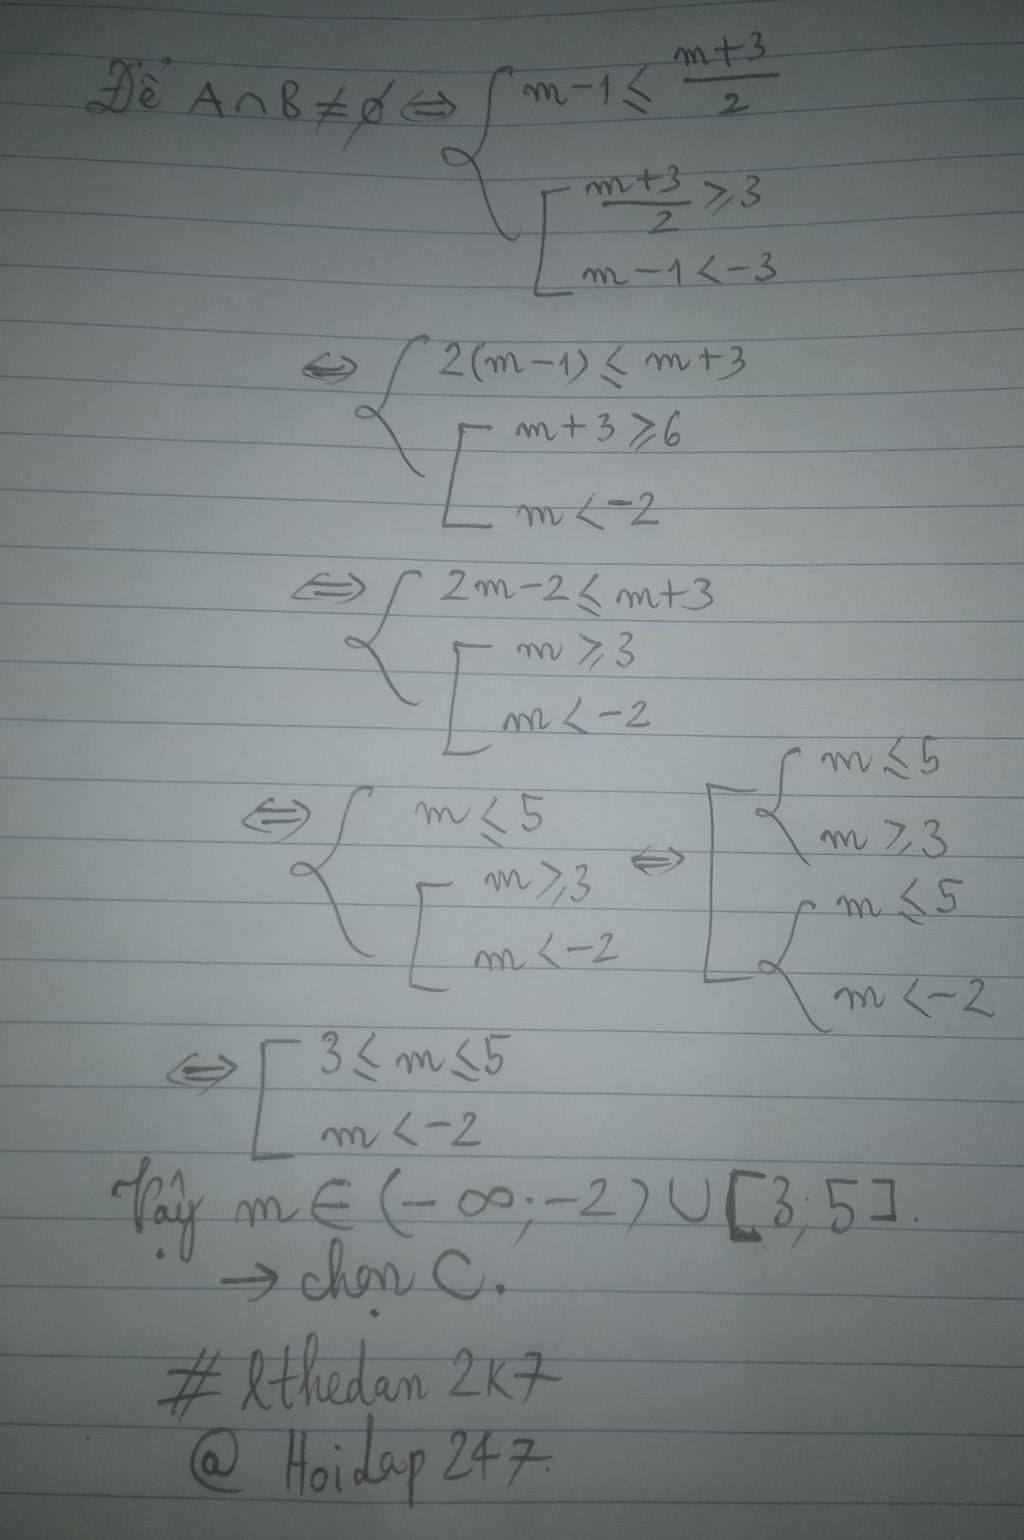 Để A∩B≠∅ ⇔ { m-1 ≤ (m+3)/2
[ (m+3)/2 ≥ 3
m-1 < -3
⇔ { 2(m-1) ≤ m+3
[ m+3 ≥ 6
m < -2
⇔ { 2m-2 ≤ m+3
[ m ≥ 3
m < -2
⇔ { m ≤ 5
[ m ≥ 3
m < -2
⇔ [ { m ≤ 5
m ≥ 3
{ m ≤ 5
m < -2
⇔ [ 3 ≤ m ≤ 5
m < -2
Vậy m ∈ (-∞;-2) ∪ [3;5].
→ chọn C.
# lthedan 2k7
@ Hoidap 247.